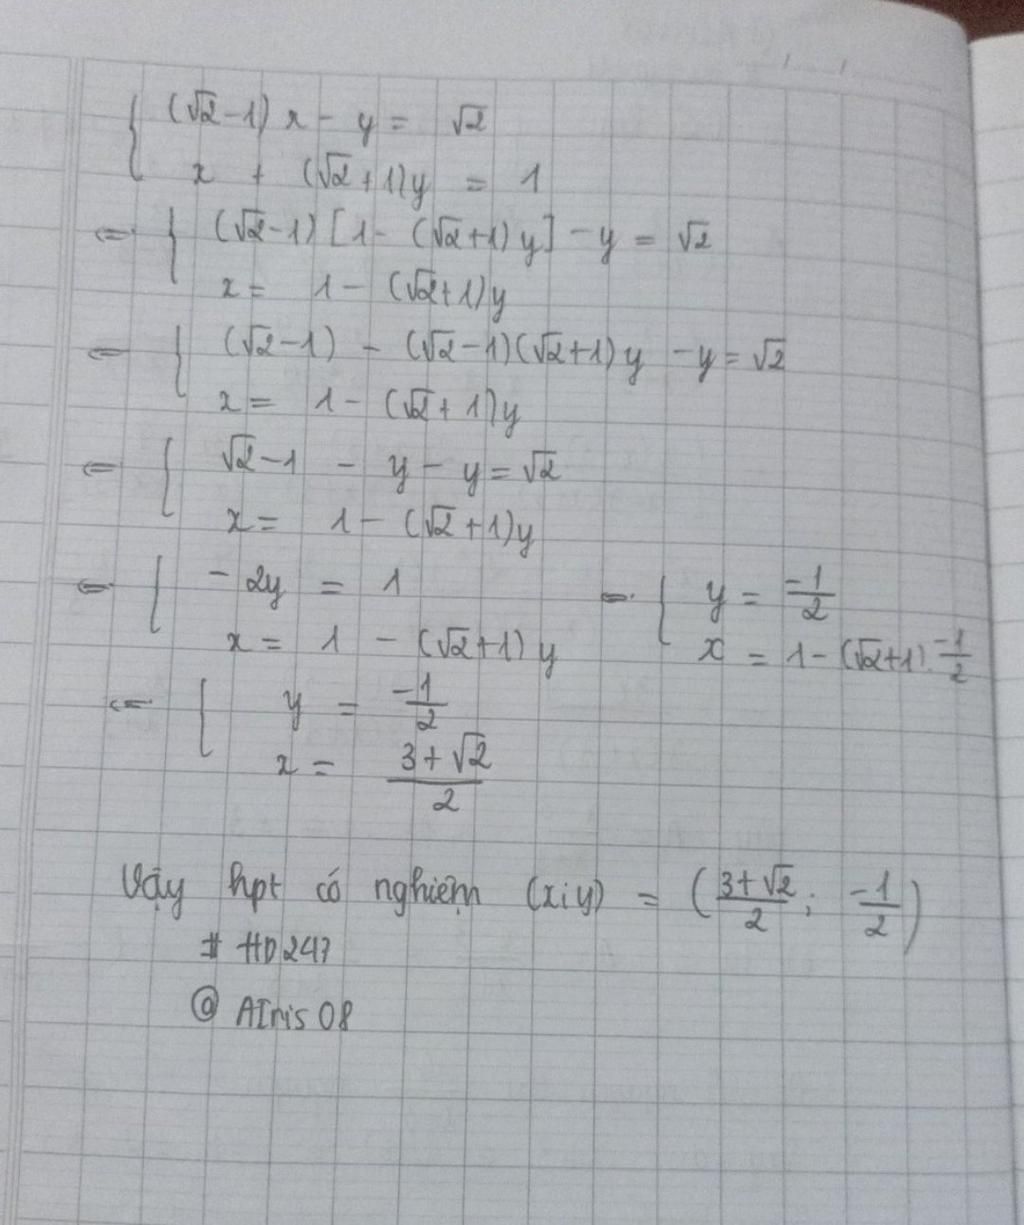 { (√2-1) x - y = √2
x + (√2+1)y = 1
⇔ { (√2-1) [1- (√2+1) y] - y = √2
x = 1 - (√2+1)y
⇔ { (√2-1) - (√2-1)(√2+1) y - y = √2
x = 1 - (√2+1)y
⇔ { √2-1 - y - y = √2
x = 1 - (√2+1)y
⇔ { - 2y = 1
x = 1 - (√2+1) y
⇔ { y = -1/2
x = 1 - (√2+1). -1/2
⇔ { y = -1/2
x = 3+√2/2
Vậy hpt có nghiệm (x;y) = (3+√2/2; -1/2)
# HD247
@ AIris 08